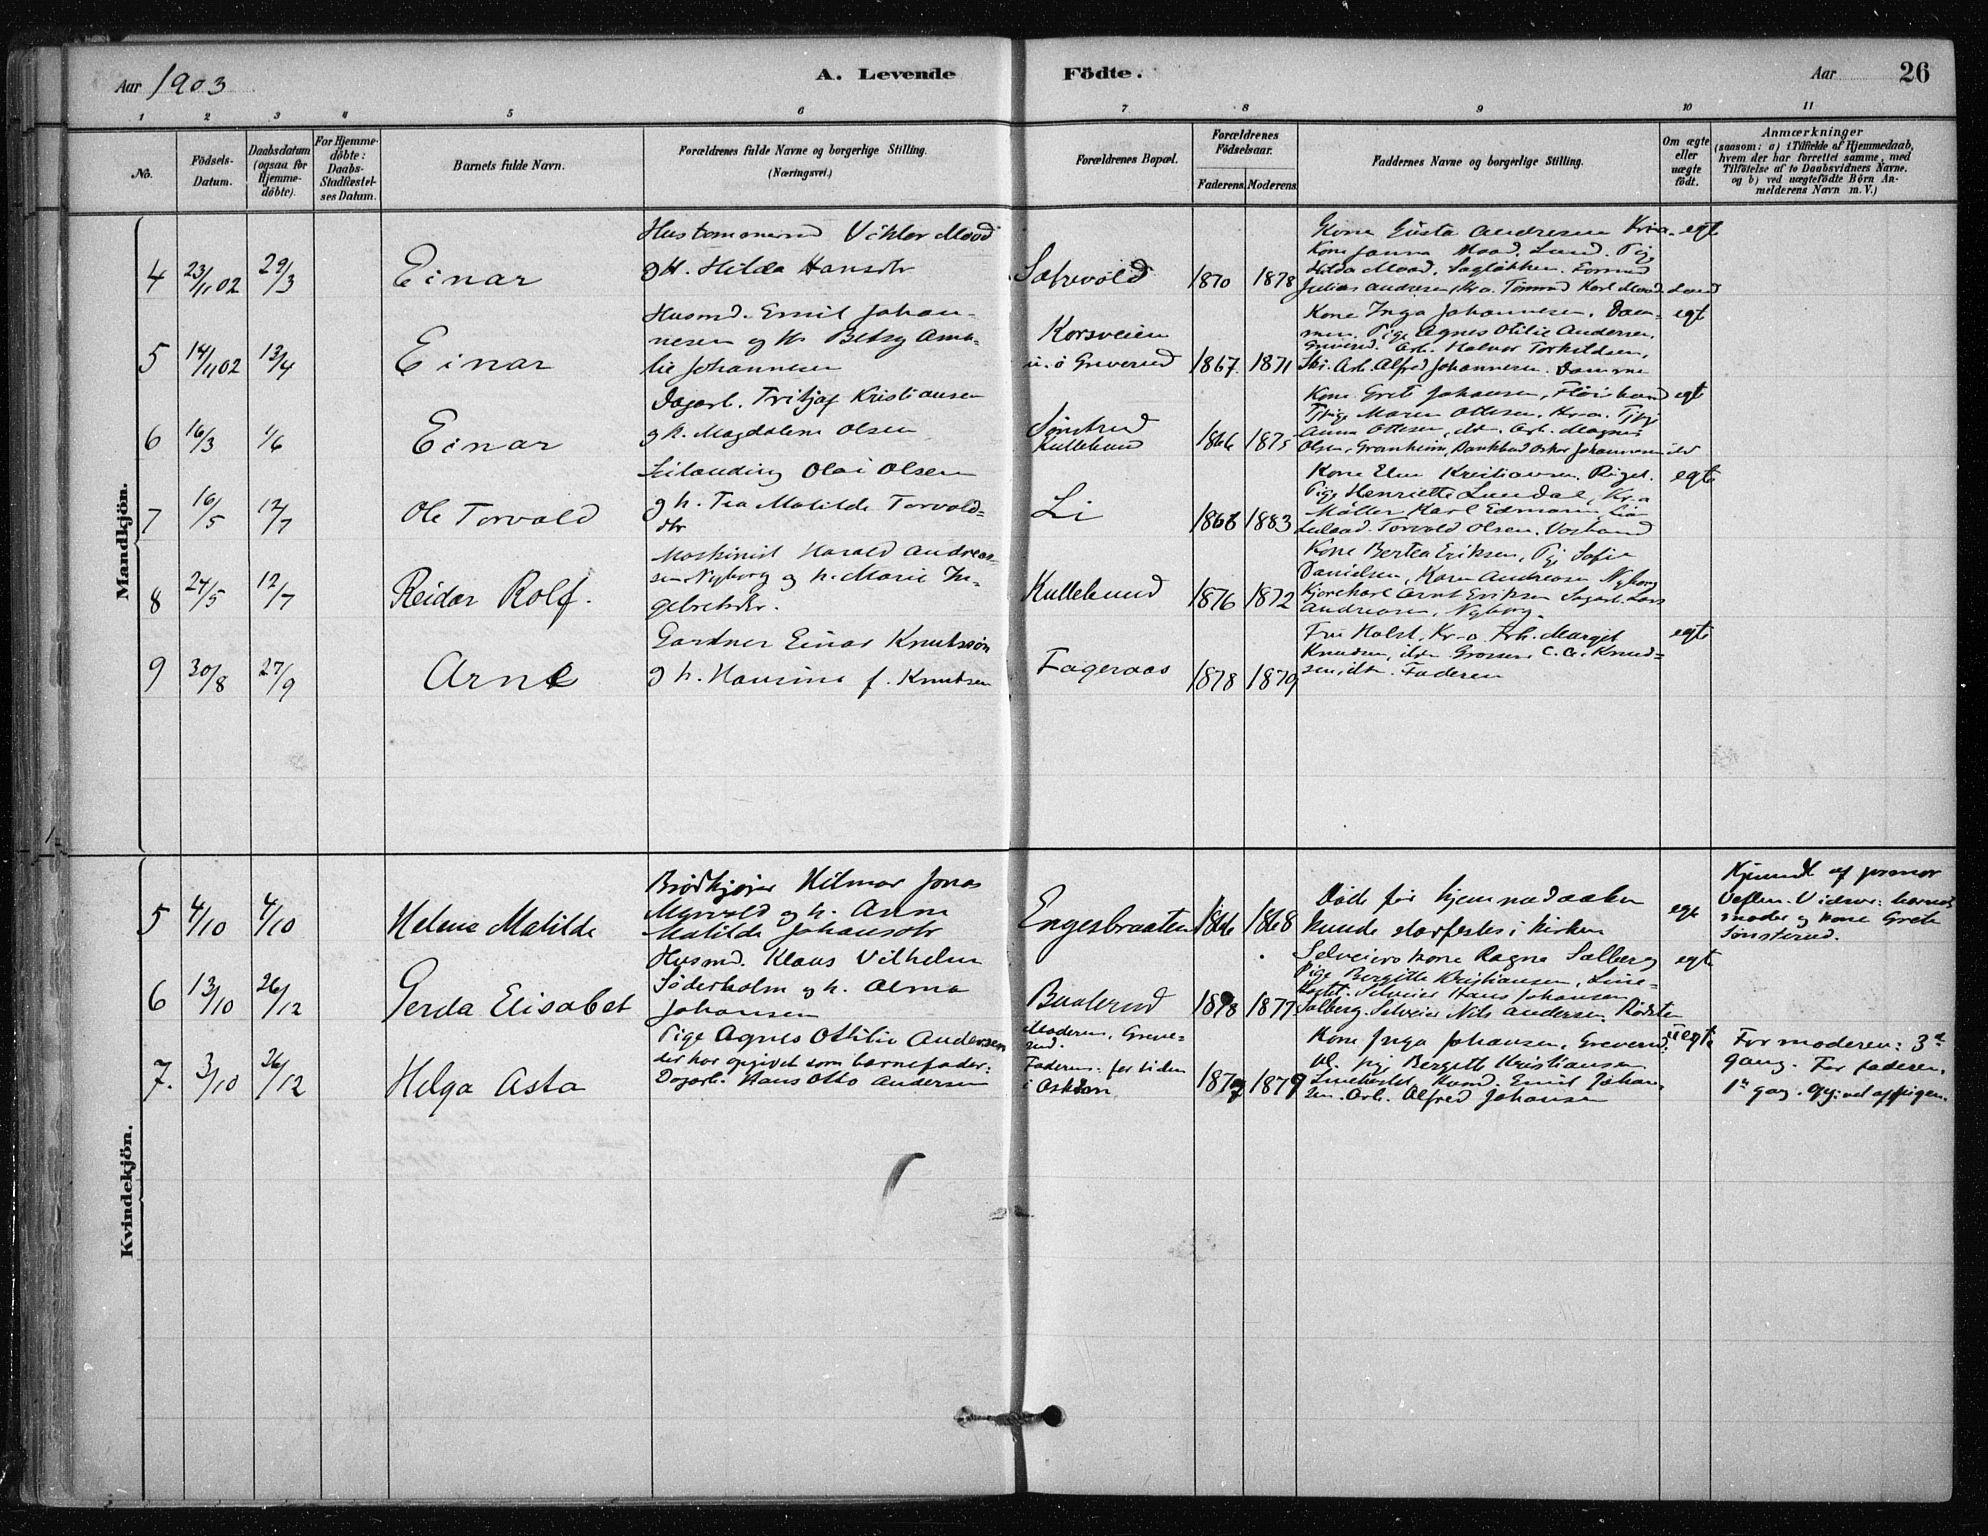 Aar 1903
A. Levende Födte.
Aar 26
1 2 3 4 5 6 7 8 9 10 11
No.
Födsels-Datum.
Daabsdatum (ogsaa for Hjemme-döbte).
For Hjemme-döbte: Daabs-Stadfæstel-ses Datum.
Barnets fulde Navn.
Forældrenes fulde Navne og borgerlige Stilling.
(Næringsvei.)
Forældrenes Bopæl.
Forældrenes Födselsaar.
Faderens. Moderens.
Faddernes Navne og borgerlige Stilling.
Om ægte eller uægte födt.
Anmærkninger
(saasom: a) i Tilfælde af Hjemmedaab, hvem der har forrettet samme, med Tilföielse af to Daabsvidners Navne, og b) ved uægtefödte Börn An-melderens Navn m. V.)
Mandkjön.
4 23/11 02 29/3 Einar
Hustømmermd Viktor Mood
g h. Hilda Hansdtr
1870 1878
Kone Gusta Andresen Kr.a. egt
Kone Janna Mood, Lund. Pig.
Hilda Mood. Sagløkken. Formd
Julius Andresen, Kr.a. Tømmd Karl Mood. Lund
5 14/11 02 13/4 Einar
Husmd. Emil Johan-
nesen og h. Betsy Ama-
lie Johannesen
Korsveien
u. ö Greverud 1867 1871
Kone Inga Johannesen, Dam- egt
men. Pige Agnes Otilie Andersen,
Greverud. Arb. Halvor Torkildsen,
Ski. Arb. Alfred Johannesen. Damme
6 16/3 1/6 Einar
Dagarb. Fritjof Kristiansen
g h. Magdalene Olsen
Sønstrud
Kullebund 1866 1875
Kone Grete Johansen, egt
Tjpige Maren Ottesen, Kr.a. Tjpig
Anna Ottesen, do. Arb. Magnus
Olsen, Granheim, Oskar Johannesen
7 16/5 12/7 Ole Torvald
Leilænding Olai Olsen
g h. Tea Matilde Torvald-
dtr
Li 1868 1883
Kone Elen Kristiansen. egte
Pige Henriette Lundal, Kr.a
Møller Karl Edmann, Lia
Torvald Olsen,
8 27/5 12/7 Reidar Rolf.
Maskinist Harald Andreas-
sen Nyborg og h. Marie In-
gebretsdtr.
Kullebund 1876 1872
Kone Bertea Eriksen, Pig Sofie
Danielsen, Karen Andreasen Nyborg
Kjørekarl Arnt Eriksen Sagarb. Lars
Andreasen, Nyborg.
9 30/8 27/9 Arne
Gartner Einar Knutssøn
g h. Hansine f. Knutsen
Fageraas 1878 1879
Fru Holst, Kr-a Frk. Margit egte
Knudsen, do Grosser C. A. Knud-
sen, do. Faderen
Kvindekjön.
5 4/10 4/10 Helene Matilde
Brødkjører Hilmar Jonas
Myrvold og h. Anna
Matilde Johansdtr
Engesbraaten 1866 1868
Døde før hjemmedaaben
kunde stadfestes i kirken
egt
Hjemdt af jormor
Veflen. Vidner: barnets
moder og kone Grete
Sønsterud.
6 13/10 26/12 Gerda Elisabet
Husmd. Klaus Vilhelm
Söderholm g h. Alma
Johansen
Baalerud 1878 1877
Selveiers kone Ragna Solberg egt
Pige Bergitte Kristiansen, Line-
kastet. Selveier Hans Johansen
Solberg. Selveier Nils Andersen. Rødsten
7. 3/10 26/12 Helga Asta
Pige Agnes Ottilie Andersen
der har opgivet som barnefader:
Dagarb. Hans Otto Andersen
Moderen, Greve-
rud.
Faderen: for tiden
i Askim 1879 1879
Kone Inga Johansen, Greverud. uegte
Ul. pig Bergitt Kristiansen
Linekastet, Husmd. Emil Johan-
sen. Arb. Alfred Johansen
For moderen: 3die
gang. For faderen:
1ste gang. Opgivet af pigen.